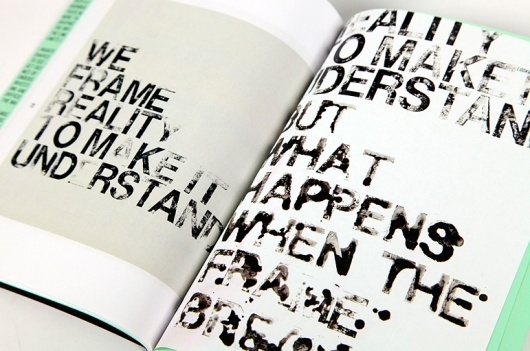 WE
FRAME
REALITY
TO MAKE IT
UNDERSTAND
REALITY
TO MAKE IT
UNDERSTAN
BUT
WHAT
HAPPENS
WHEN THE
FRAME